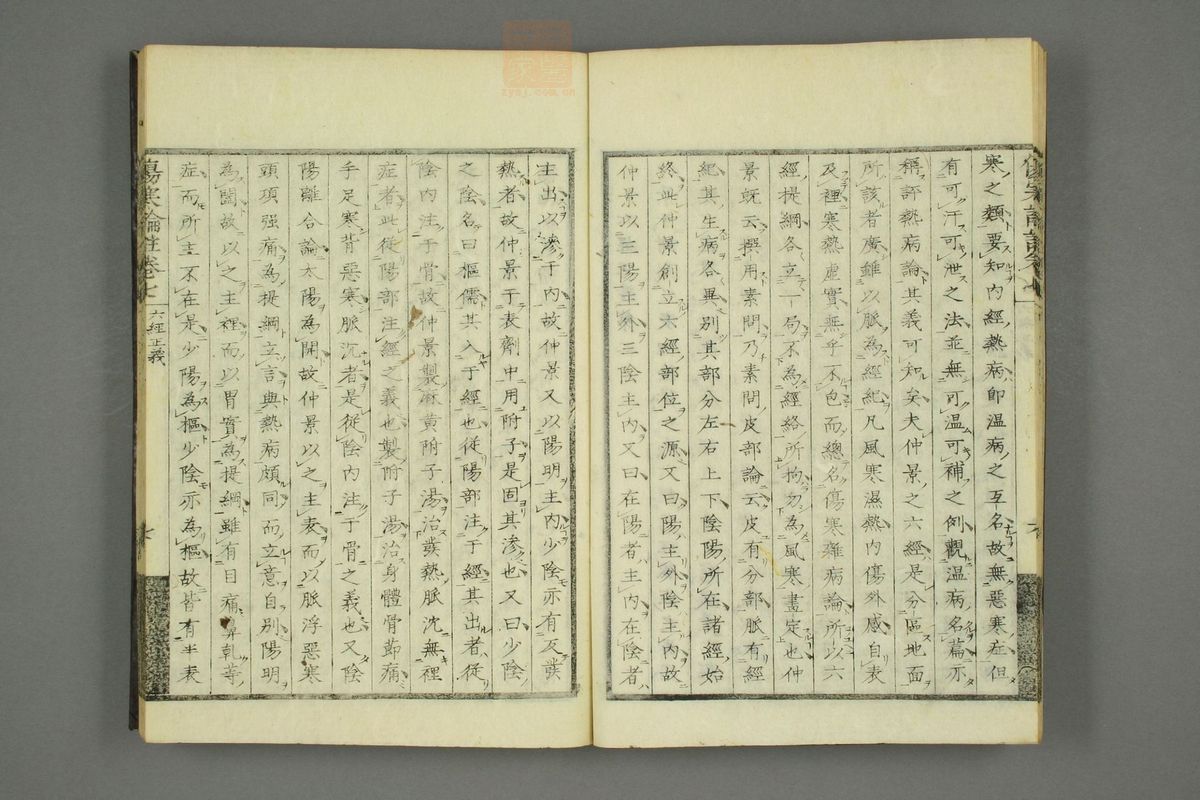 寒之類要知内經熱病即溫病之互名故無惡寒症但
有可汗可泄之法並無可溫可補之例觀溫病名篇亦
稱評熱病論其義可知矣夫仲景之六經是分區地面
所該者廣雖以脈為經紀凡風寒濕熱内傷外感自表
及裡寒熱虛實無乎不包而總名傷寒雜病論所以六
經提綱各立一局不為經絡所拘勿為風寒畫定也仲
景既云撰用素問乃素問皮部論云皮有分部脈有經
紀其生病各異別其部分左右上下陰陽所在諸經始
終此仲景創立六經部位之源又曰陽主外陰主内故
仲景以三陽主外三陰主内又曰在陽者主内在陰者
主出以滲于内故仲景又以陽明主内少陰亦有反發
熱者故仲景于表劑中用附子是固其滲也又曰少陰
之陰名曰樞儒其入于經也從陽部注于經其出者從
陰内注于骨故仲景製麻黄附子湯治發熱脈沈無裡
症者此從陽部注經之義也製附子湯治身體骨節痛
手足寒背惡寒脈沉者是從陰内注于骨之義也又陰
陽離合論太陽為開故仲景以之主表而以脈浮惡寒
頭項强痛為提綱立言與熱病頗同而立意自別陽明
為闔故以之主裡而以胃實為提綱雖有目痛鼻乾等
症而所主不在是少陽為樞少陰亦為樞故皆有半表
傷寒論註卷七
六經正義
zysj.com.cn